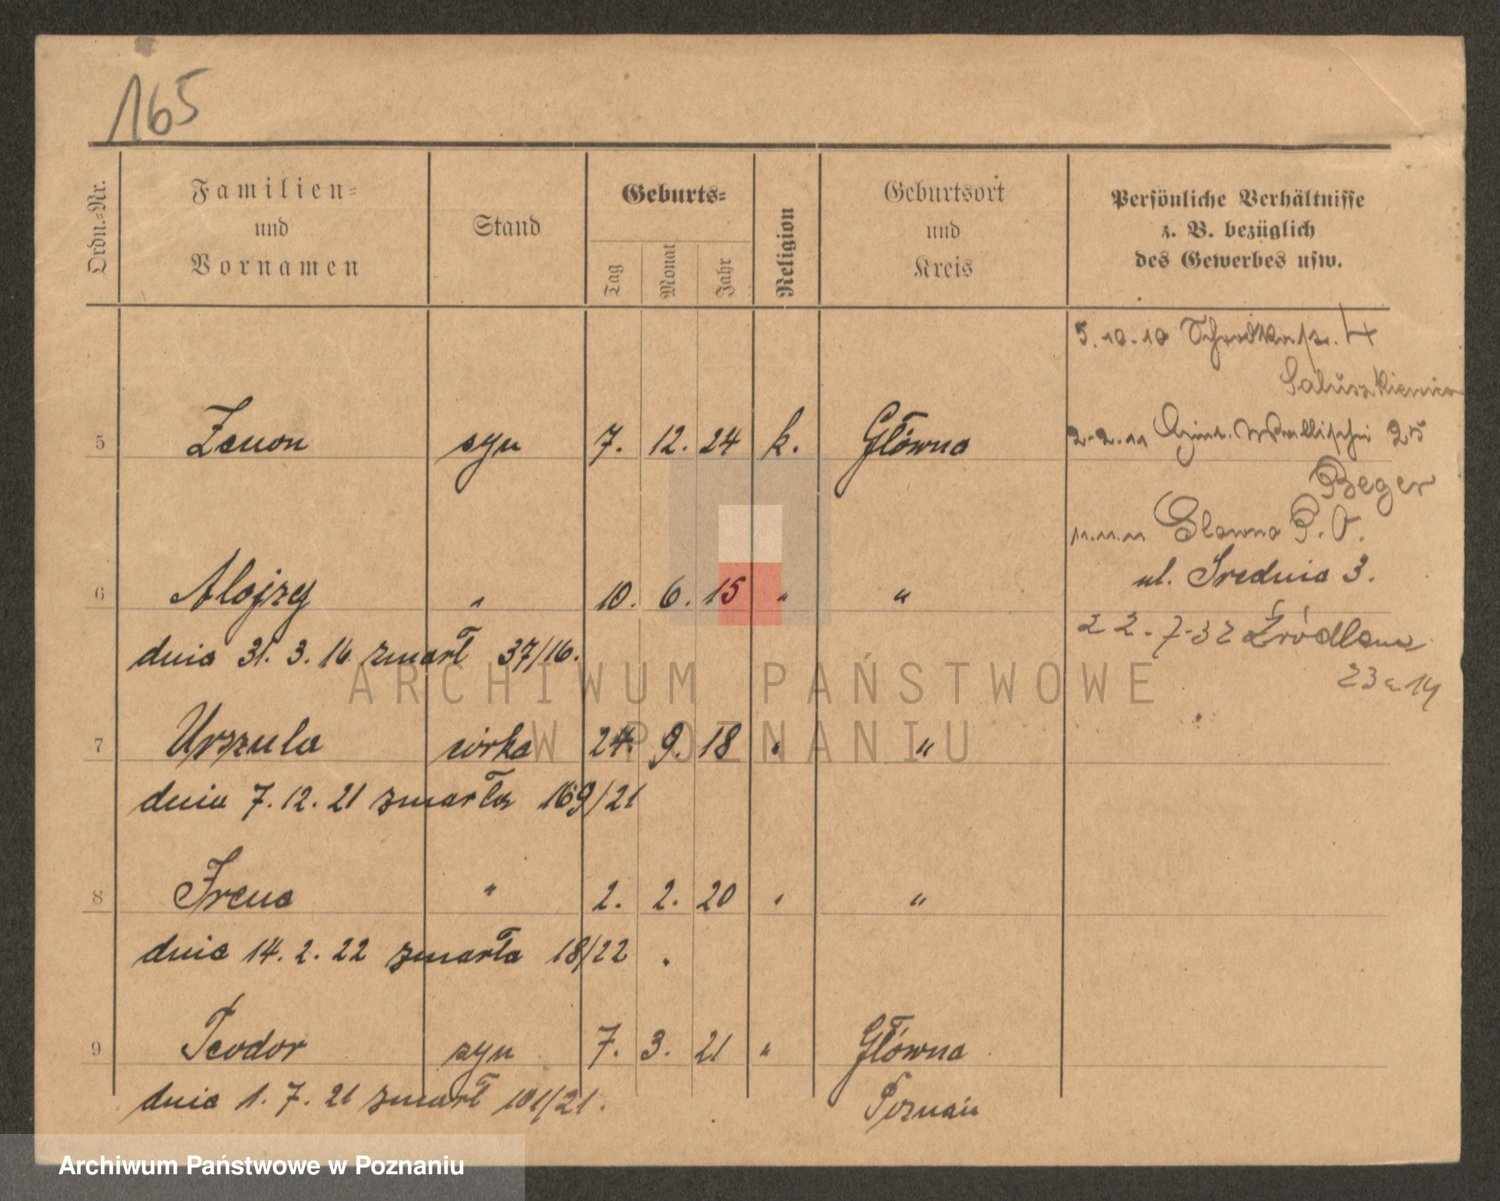 165
Ordn.-Nr.
Familien-
und
Vornamen
Stand
Geburts-
Tag
Monat
Jahr
Religion
Geburtsort
und
Kreis
Persönliche Verhältnisse
z. B. bezüglich
des Gewerbes usw.
5.10.10 Schrodkastr. 4
2.2.11 Wallischei 25
Beger
11.11.11 Glowno P. O.
ul. Średnia 3.
22.7.32 Źródlana
23 14
5 Zenon syn 7. 12. 24 k. Główna
6 Alojzy " 10. 6. 15 " "
dnia 31. 3. 16 zmarł 37/16.
7 Urszula córka 24. 9. 18 " "
dnia 7. 12. 21 zmarła 169/21
8 Irena " 2. 2. 20 " "
dnia 14. 2. 22 zmarła 18/22.
9 Teodor syn 7. 3. 21 " Główna
dnia 1. 7. 21 zmarł 101/21. Poznań
ARCHIWUM PAŃSTWOWE
W POZNANIU
Archiwum Państwowe w Poznaniu